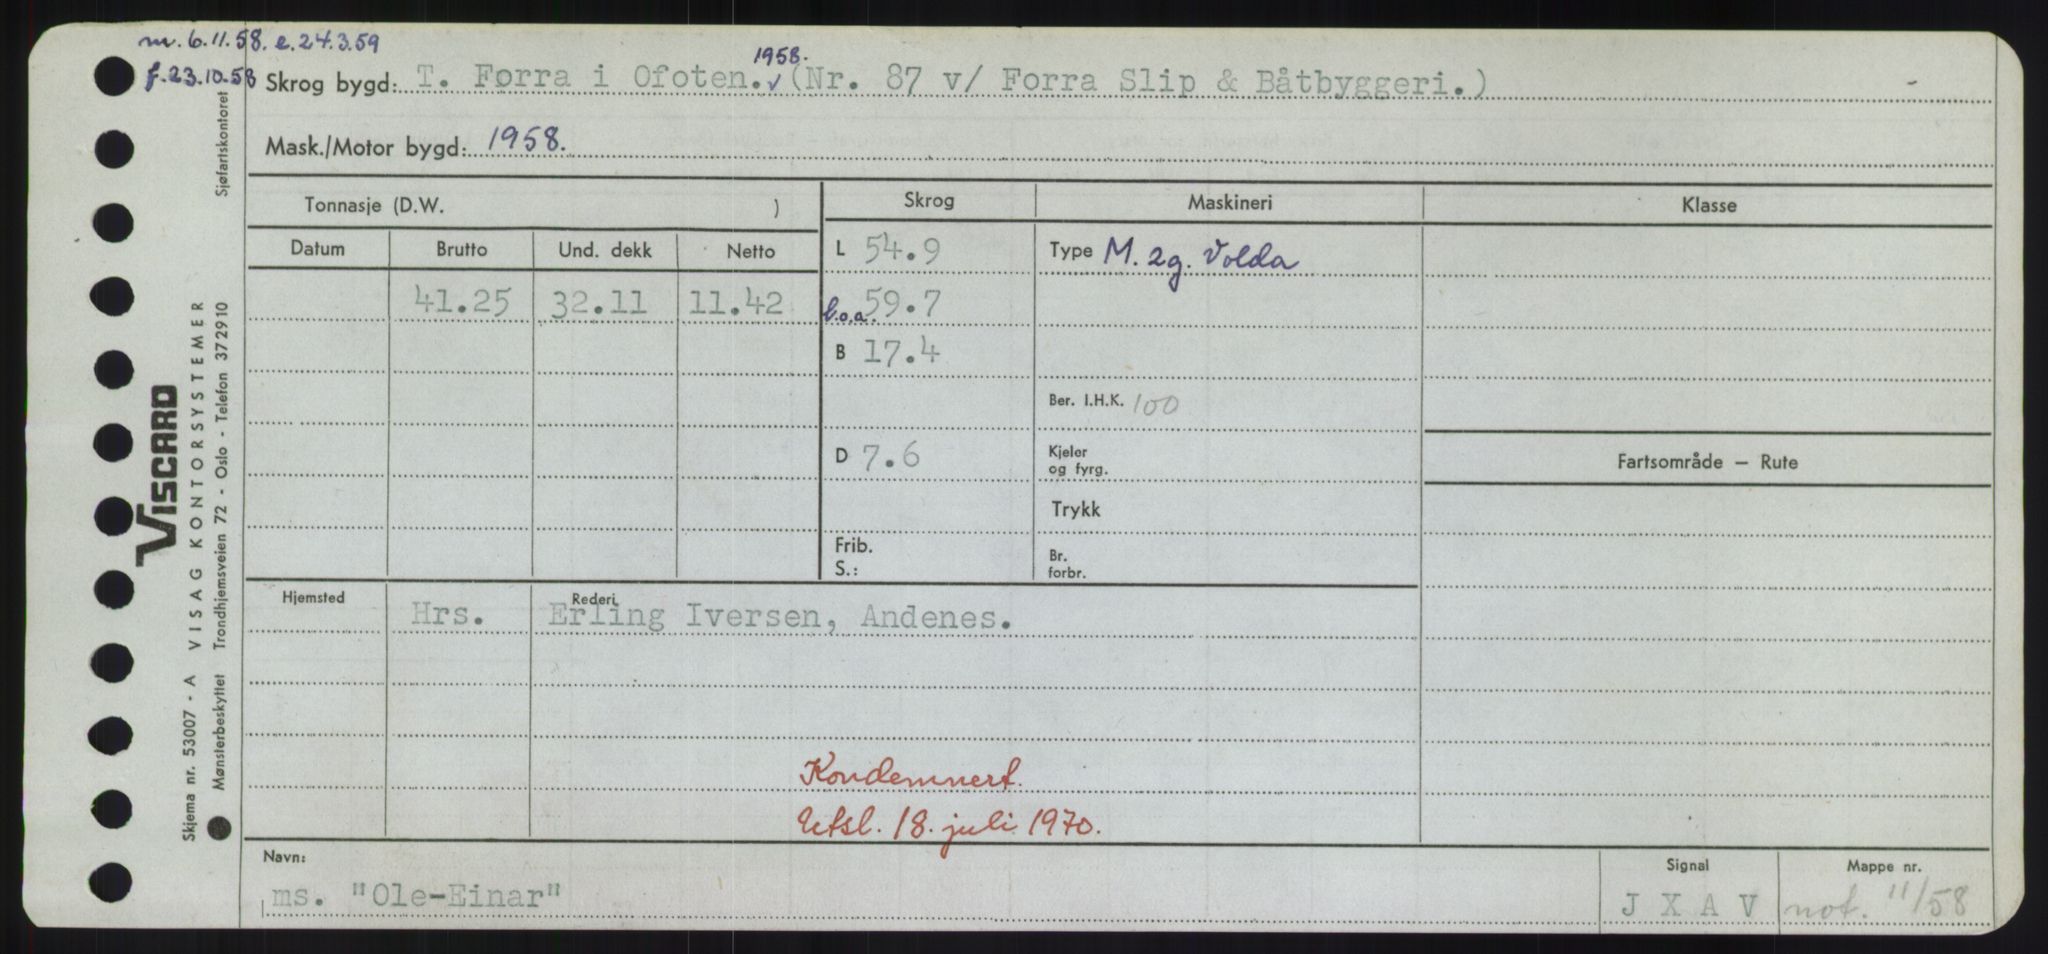 m. 6.11.58. e. 24.3.59
f. 23.10.58
1958.
Skrog bygd: T. Forra i Ofoten. v (Nr. 87 v/ Forra Slip & Båtbyggeri.)
Mask./Motor bygd: 1958.
Tonnasje (D.W. )
Skrog
Maskineri
Klasse
Datum
Brutto
Und. dekk
Netto
L 54.9
Type M. 2g. Volda
41.25
32.11
11.42
l.o.a. 59.7
B 17.4
Ber. I.H.K. 100
D 7.6
Kjeler
og fyrg.
Fartsområde – Rute
Trykk
Frib.
S.:
Br.
forbr.
Hjemsted
Rederi
Hrs.
Erling Iversen, Andenes.
Kondemnert.
Utsl. 18. juli 1970.
Navn:
ms. "Ole-Einar"
Signal
J X A V
Mappe nr.
not. 11/58
VISCARD
Skjema nr. 53007 - A VISAG KONTORSYSTEMER
Mønsterbeskyttet Trondhjemsveien 72 - Oslo - Telefon 372910
Sjøfartskontoret